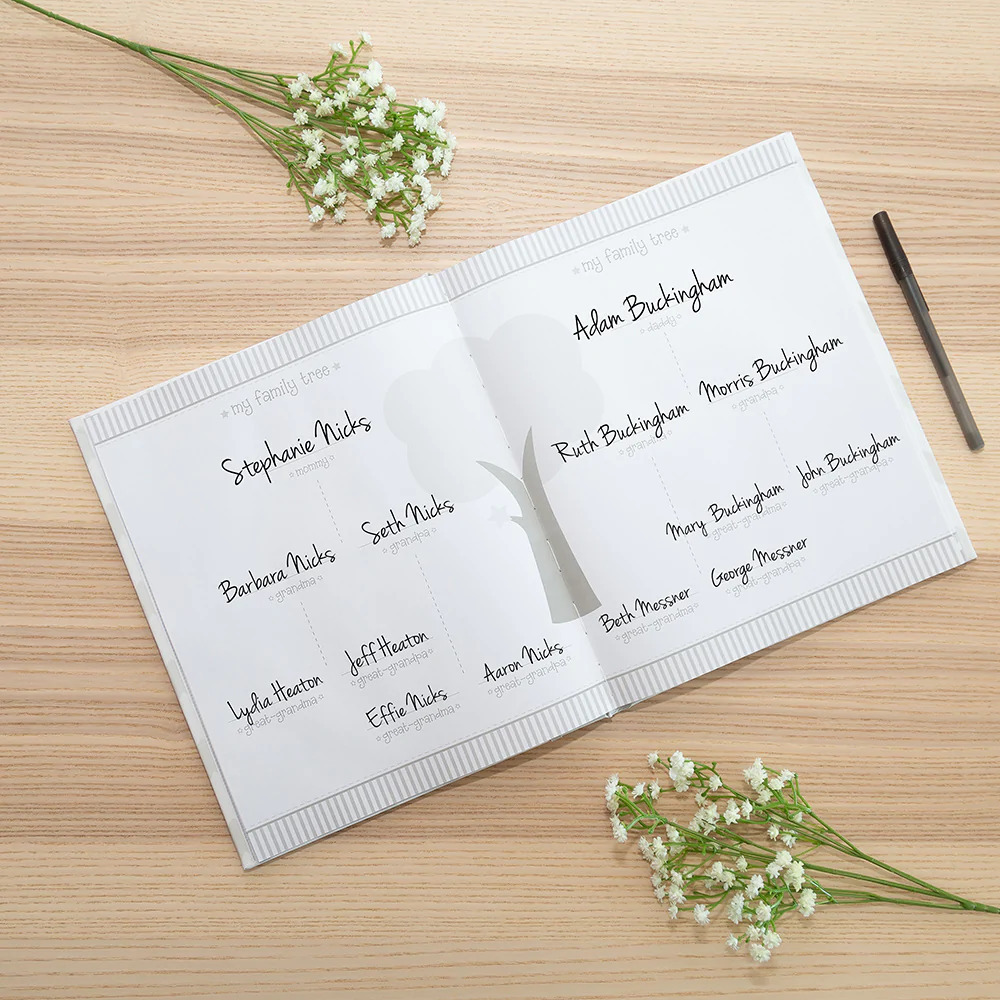 my family tree
Stephanie Nicks
mommy
Seth Nicks
grandpa
Barbara Nicks
grandma
Jeff Heaton
great-grandpa
Lydia Heaton
great-grandma
Aaron Nicks
great-grandpa
Effie Nicks
great-grandma
my family tree
Adam Buckingham
daddy
Morris Buckingham
grandpa
Ruth Buckingham
grandma
John Buckingham
great-grandpa
Mary Buckingham
great-grandma
George Messner
great-grandpa
Beth Messner
great-grandma